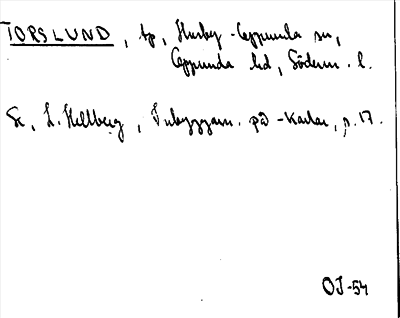 TORSLUND, tp, Husby-Oppunda sn,
Oppunda hd, Söderm. l.
Se, L. Hellberg, Inbyggarn. på -karlar, s. 17.
OJ-54